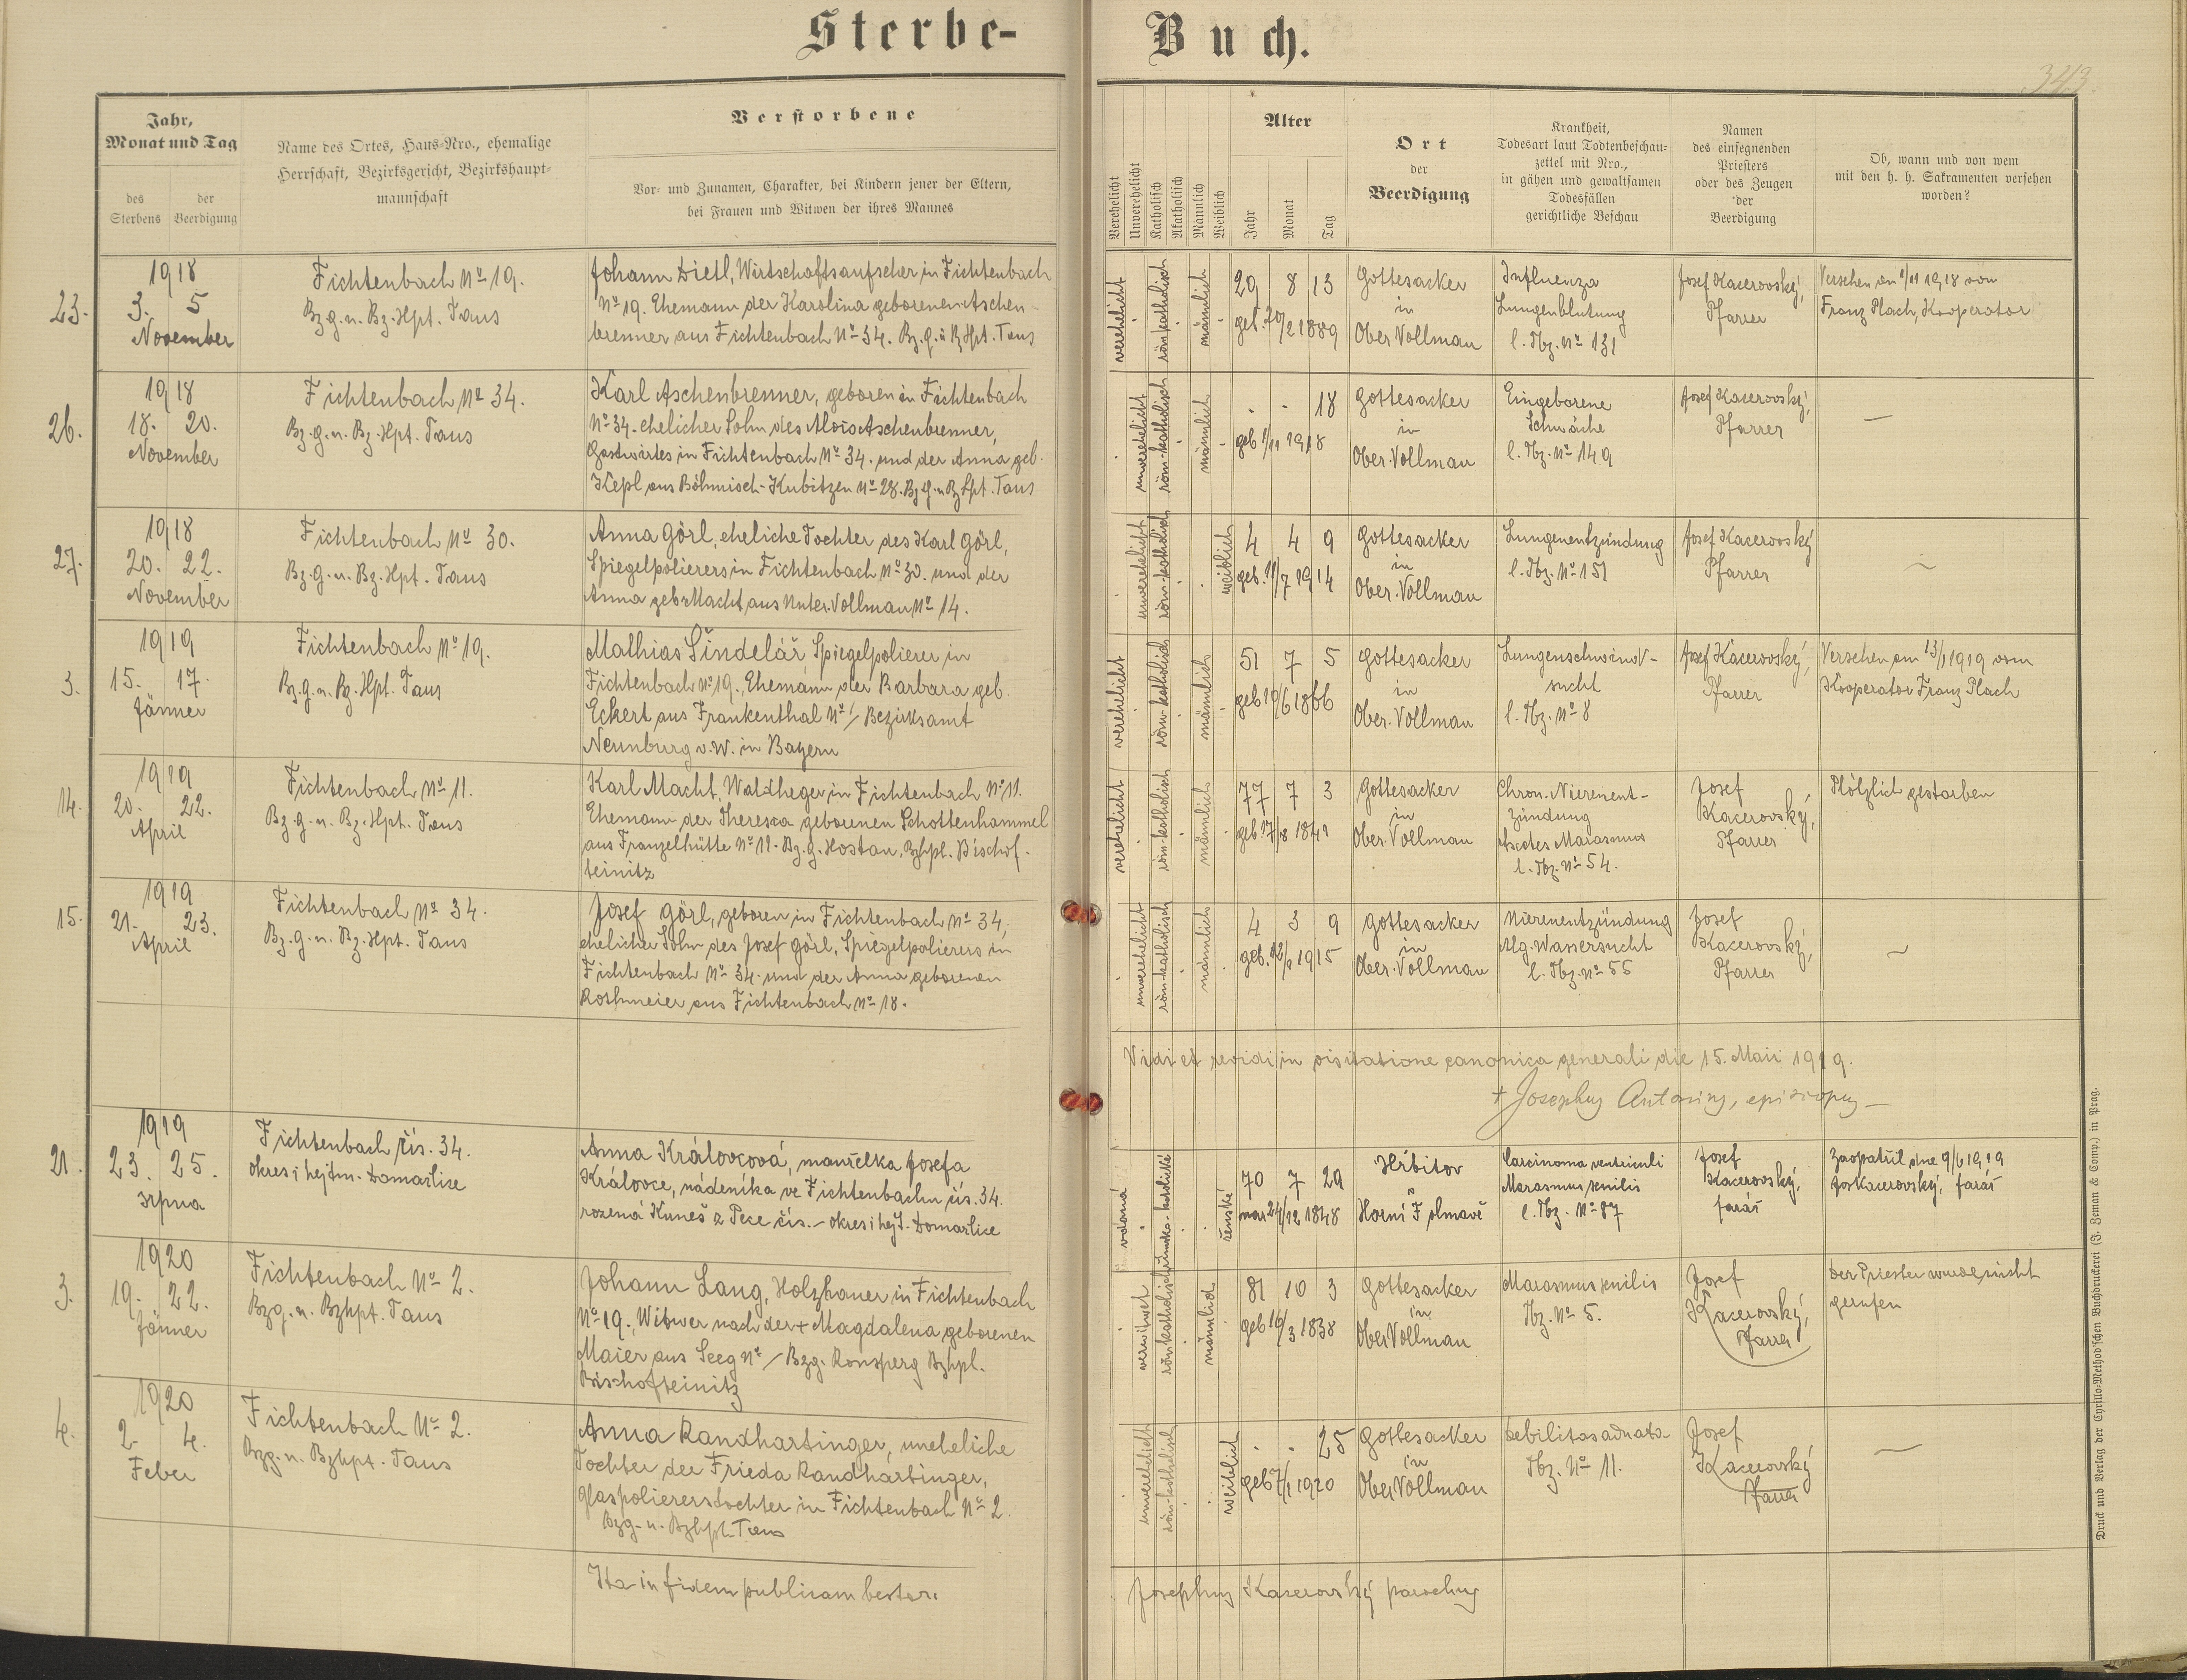 Sterbe-
Buch.
343
Jahr,
Monat und Tag
des Sterbens
der Beerdigung
Name des Ortes, Haus-Nro., ehemalige
Herrschaft, Bezirksgericht, Bezirkshaupt-
mannschaft
Verstorbene
Vor- und Zunamen, Charakter, bei Kindern jener der Eltern,
bei Frauen und Witwen der ihres Mannes
Verehelicht
Unverehelicht
Katholisch
Akatholisch
Männlich
Weiblich
Alter
Jahr
Monat
Tag
Ort
der
Beerdigung
Krankheit,
Todesart laut Todtenbeschau-
zettel mit Nro.,
in gähen und gewaltsamen
Todesfällen
gerichtliche Beschau
Namen
des einsegnenden
Priesters
oder des Zeugen
der
Beerdigung
Ob, wann und von wem
mit den h. h. Sakramenten versehen
worden?
23.
1918
3. 5
November
Fichtenbach No 19.
Bz.g.u. Bz.Hpt. Taus
Johann Dietl, Wirtschaftsaufseher in Fichtenbach
No 19. Ehemann der Karolina geborenen Aschen-
brenner aus Fichtenbach No 34. Bz.g.u Bz Hpt. Taus
verehelicht
röm-katholisch
männlich
29 8 13
geb. 20/2 1889
Gottesacker
in
Ober Vollmau
Influenza
Lungenblutung
l. Tbz. No 131
Josef Kacerovský,
Pfarrer
Versehen am 1/11 1918 von
Franz Plach, Kooperator
26.
1918
18. 20.
November
Fichtenbach No 34.
Bz.g.u. Bz.Hpt. Taus
Karl Aschenbrenner, geboren in Fichtenbach
No 34. ehelicher Sohn des Alois Aschenbrenner,
Gastwirtes in Fichtenbach No 34. und der Anna geb.
Kepl aus Böhmisch-Kubitzen No 28. Bz.g.u Bz Hpt. Taus
unverehelicht
röm-katholisch
männlich
- - 18
geb 1/11 1918
Gottesacker
in
Ober.Vollmau
Eingeborene
Schwäche
l. Tbz. No 149
Josef Kacerovský,
Pfarrer
—
27.
1918
20. 22.
November
Fichtenbach No 30.
Bz.g.u. Bz.Hpt. Taus
Anna Görl, eheliche Tochter des Karl Görl,
Spiegelpolierers in Fichtenbach No 30. und der
Anna geb. Macht aus Unter.Vollmau No 14.
unverehelicht
röm-katholisch
weiblich
4 4 9
geb. 11/7 1914
Gottesacker
in
Ober.Vollmau
Lungenentzündung
l. Tbz. No 151
Josef Kacerovský
Pfarrer
—
3.
1919
15. 17.
Jänner
Fichtenbach No 19.
Bz.g.u. Bz.Hpt. Taus
Mathias Šindelář Spiegelpolierer in
Fichtenbach No 19., Ehemann der Barbara geb.
Eckert aus Frankenthal No / Bezirksamt
Neunburg v.W. in Bayern
verehelicht
röm-katholisch
männlich
51 7 5
geb 10/6 1866
Gottesacker
in
Ober.Vollmau
Lungenschwind-
sucht
l. Tbz. No 8
Josef Kacerovský,
Pfarrer
Versehen am 13/1 1919 vom
Kooperator Franz Plach
14.
1919
20. 22.
April
Fichtenbach No 11.
Bz.g.u. Bz.Hpt. Taus
Karl Macht, Waldheger in Fichtenbach No 11.
Ehemann der Theresia geborenen Schottenhammel
aus Franzelhütte No 11. Bz.g. Hostau, Bzhpt. Bischof-
teinitz
verehelicht
röm-katholisch
männlich
77 7 3
geb 17/8 1841
Gottesacker
in
Ober.Vollmau
Chron. Nierenent-
zündung
Marasmus
l. Tbz. No 54.
Josef
Kacerovský,
Pfarrer
Plötzlich gestorben
15.
1919
21. 23.
April
Fichtenbach No 34.
Bz.g.u. Bz.Hpt. Taus
Josef Görl, geboren in Fichtenbach No 34,
ehelicher Sohn des Josef Görl, Spiegelpolierers in
Fichtenbach No 34. und der Anna geborenen
Rothmeier aus Fichtenbach No 18.
unverehelicht
röm-katholisch
männlich
4 3 9
geb. 12/1 1915
Gottesacker
in
Ober.Vollmau
Nierenentzündung
Alg. Wassersucht
l. Tbz. No 55
Josef
Kacerovský,
Pfarrer
—
Vidi et revidi in visitatione canonica generali die 15. Maii 1919.
+ Josephus Antonius, episcopus
21.
1919
23. 25.
srpna
Fichtenbach čís. 34.
okres i hejtm. Domažlice
Anna Královcová, manželka Josefa
Královce, nádeníka ve Fichtenbachu čís. 34.
rozená Kuneš z Pece čís. – okres i hejt. Domažlice
vdaná
římsko-katolické
ženské
70 7 29
nar 24/12 1848
Hřbitov
v
Horní Folmavě
Carcinoma ventriculi
Marasmus senilis
l. Tbz. No 87
Josef
Kacerovský,
farář
Zaopatřil dne 9/6 1919
Jos Kacerovský, farář
3.
1920
19. 22.
Jänner
Fichtenbach No 2.
Bzg. u. Bzhpt. Taus
Johann Lang, Holzhauer in Fichtenbach
No 19., Witwer nach der + Magdalena geborenen
Maier aus Seeg No / Bzg. Ronsperg Bzhpt.
Bischofteinitz
verwitwet
röm katholisch
männlich
81 10 3
geb 16/3 1838
Gottesacker
in
Ober Vollmau
Marasmus senilis
Tbz. No 5.
Josef
Kacerovský,
Pfarrer
Der Priester wurde nicht
gerufen
4.
1920
2. 4.
Feber
Fichtenbach No 2.
Bzg. u. Bzhpt. Taus
Anna Randhartinger, uneheliche
Tochter der Frieda Randhartinger,
Glaspolierertochter in Fichtenbach No 2.
Bzg. u. Bzhpt. Taus
unverehelicht
röm-katholisch
weiblich
- - 25
geb 7/1 1920
Gottesacker
in
Ober Vollmau
Debilitas adnata
Tbz. No 11.
Josef
Kacerovský
Pfarrer
—
Ita in fidem publicam testor:
Josephus Kacerovský parochus
Druck und Verlag der Cyrillo-Method'schen Buchdruckerei (J. Zeman & Comp.) in Prag.